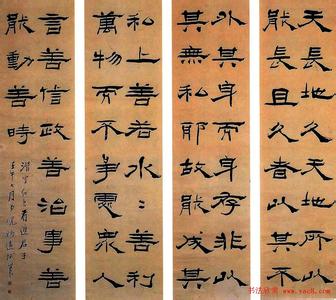 天長地久天地所以
能長且久者以其不
外其身而身存非以
其無私耶故能成其
私上善若水=善利
萬物而不爭處衆人
言善信政善治事善
能動善時
www.yac8.com